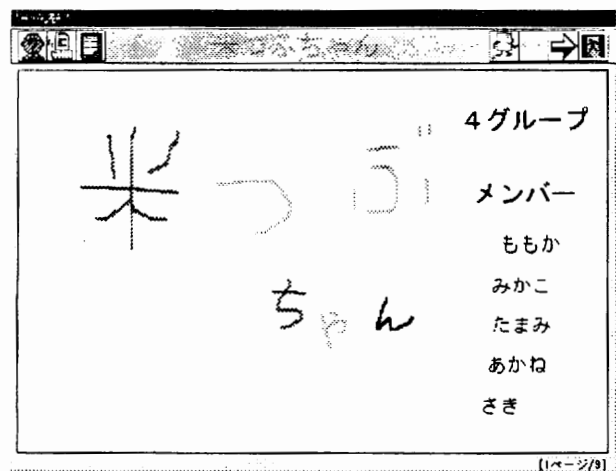 米つぶ
ちゃん
4グループ
メンバー
ももか
みかこ
たまみ
あかね
さき
[1ページ/9]